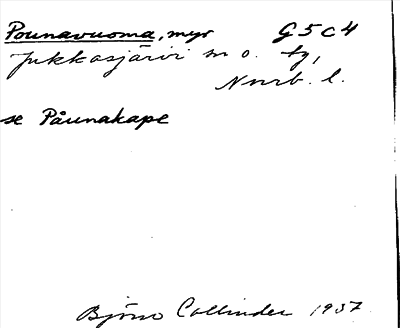 Pounavuoma, myr G5c4
Jukkasjärvi sn o. tg,
Nnrb. l.
se Påunakape
Björn Collinder 1937